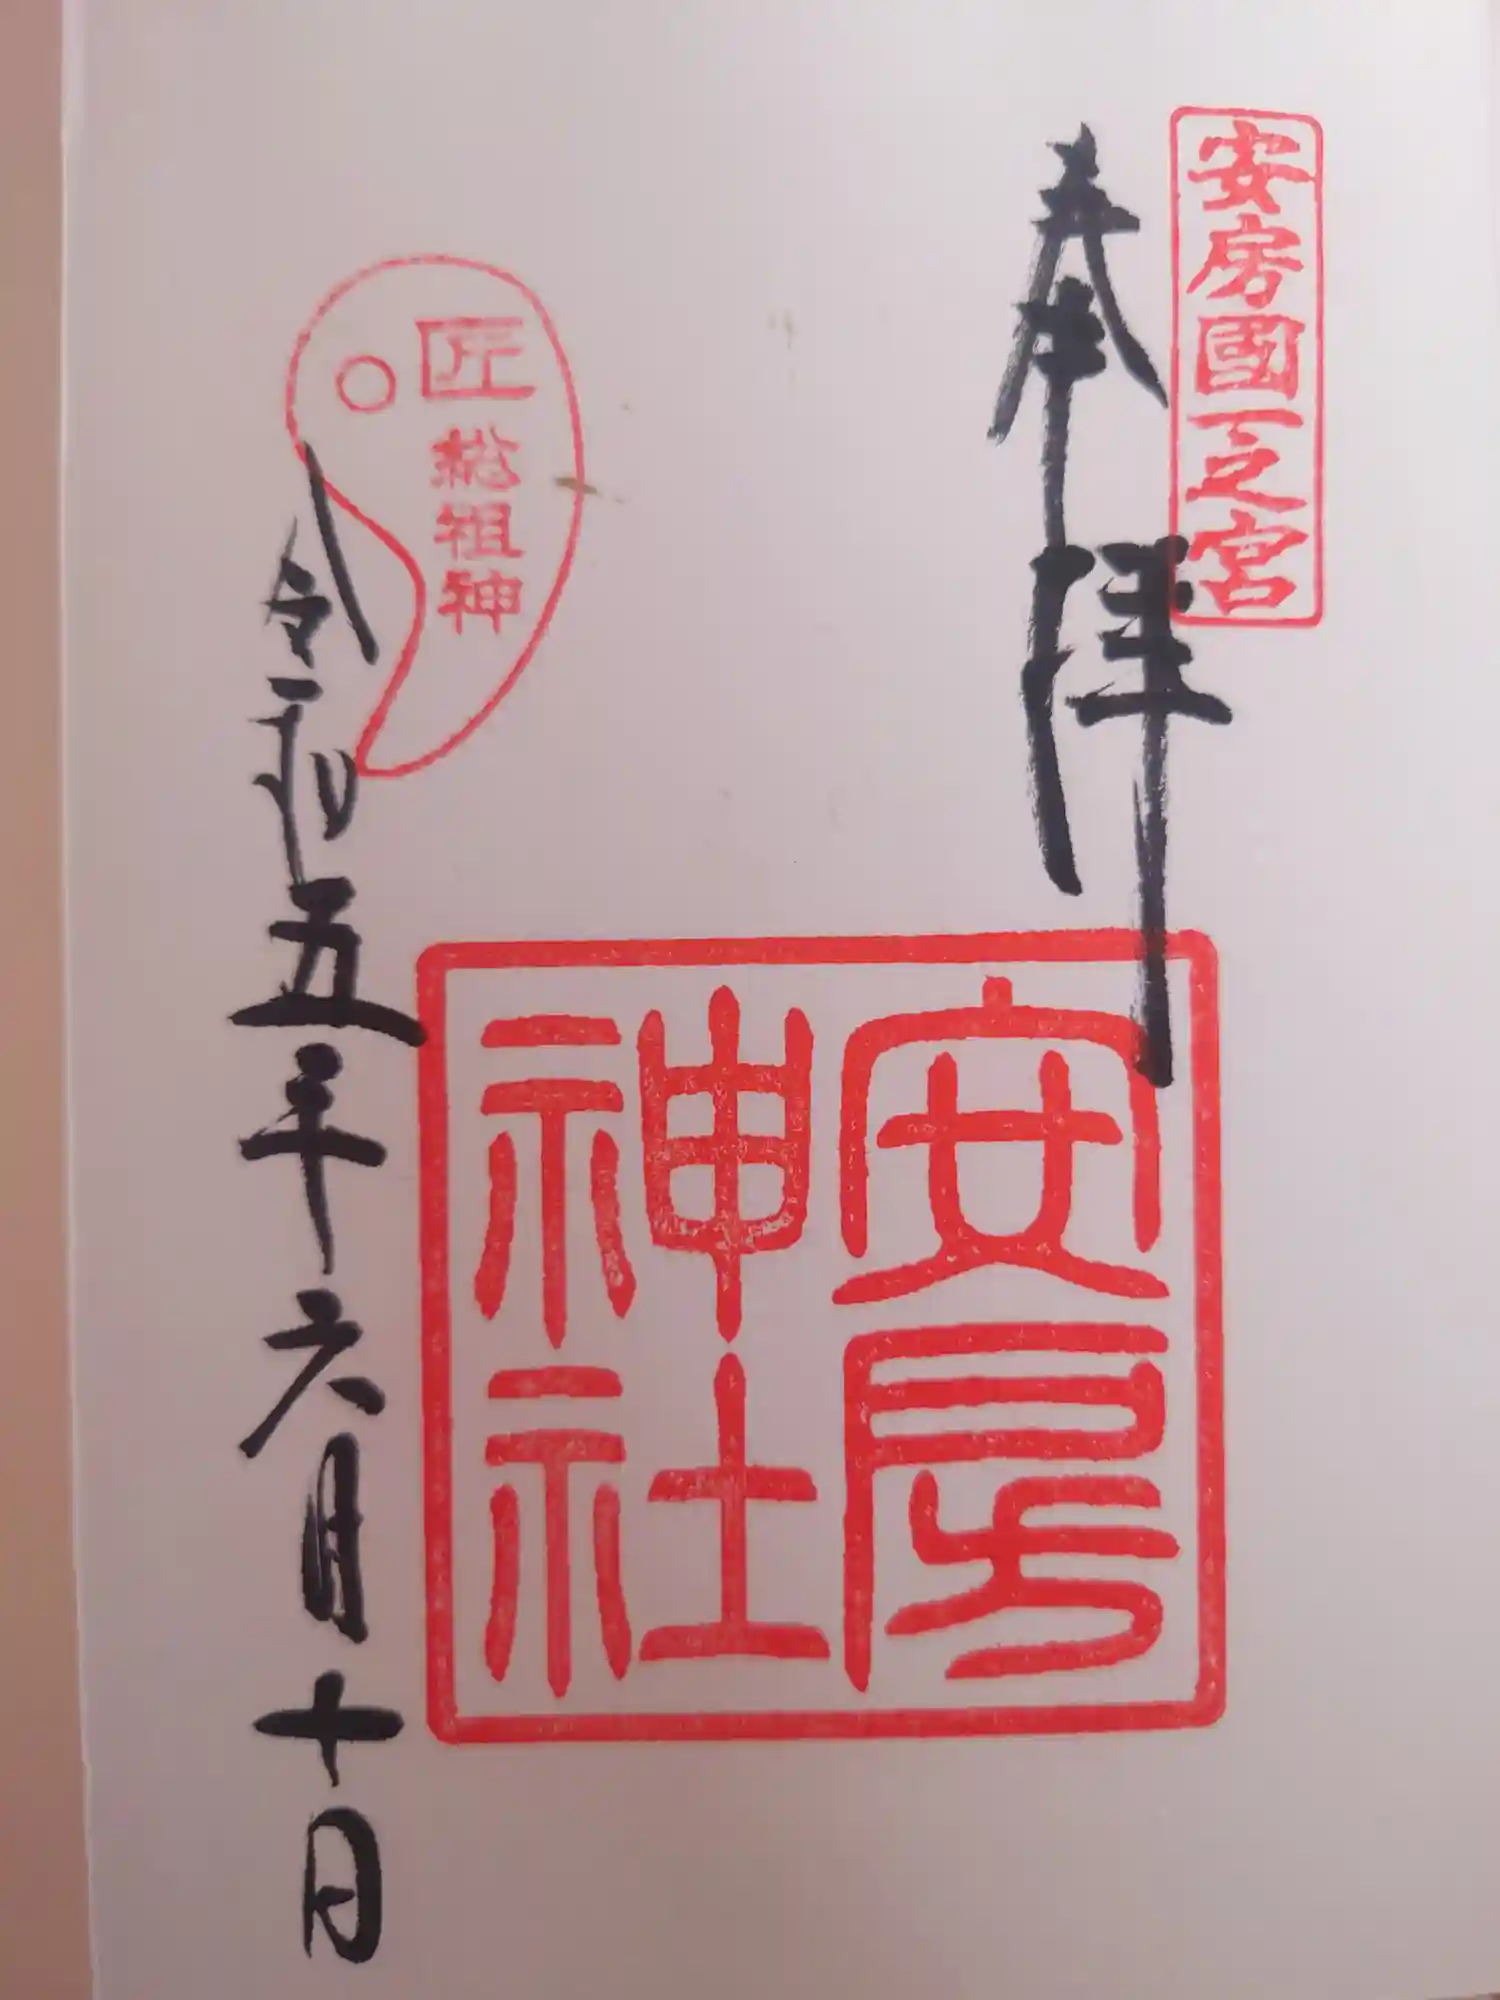 安房國一之宮
奉拝
安房
神社
匠総祖神
令和五年六月十日